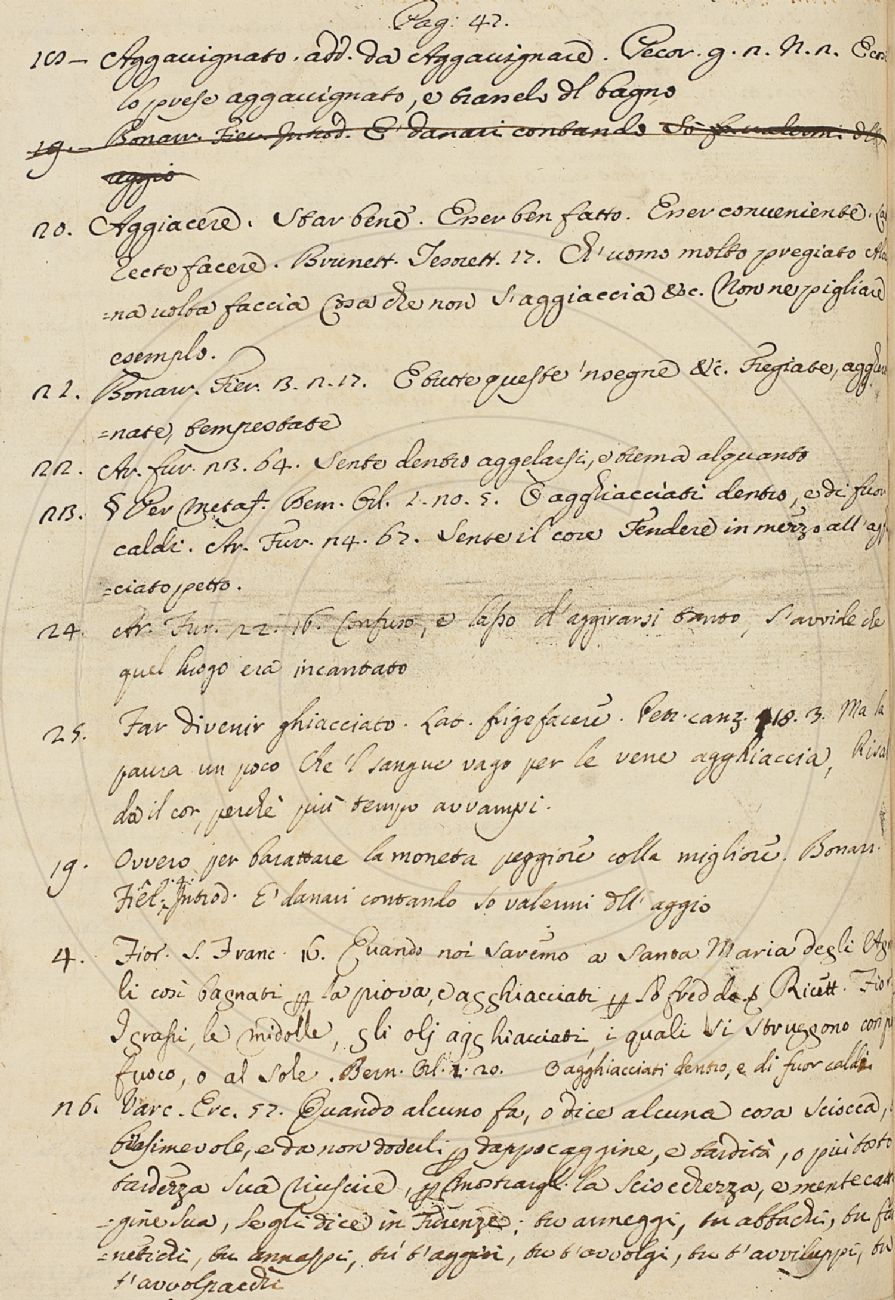 Pag: 42.
18 – Aggavignato. add. da Aggavignare. Pecor. g. 2. N. 2. E così
lo prese aggavignato, e trasselo del bagno
19. Bonarr. Fier. Introd. E' danari contando so valermi dell'
aggio
20. Aggiacere. Star bene. Esser ben fatto. Esser conveniente.
lecto facere. Brunett. Tesorett. 17. Ch'uomo molto pregiato Alcu
=na volta faccia Cosa che non s'aggiaccia &c. Non ne pigliare
esemplo.
21. Bonarr. Fier. 3. 2. 17. E tutte queste 'nsegne &c. Fregiate, agghero
=nate, tempestate
22. Ar. fur. 23. 64. Sente dentro aggelarsi, e trema alquanto
23. § Per metaf. Bern. Orl. 1. 20. 5. O agghiacciati dentro, e di fuor
caldi. Ar. Fur. 24. 67. Sente il core Fendere in mezzo all'aggh
=ciato petto.
24. Ar. Fur. 22. 16. Confuso, e lasso d'aggirarsi tanto, s'avvide che
quel luogo era incantato
25. Far divenir ghiacciato. Lat. frigefacere. Petr. canz. 18. 3. Ma la
paura un poco Che 'l sangue vago per le vene agghiaccia, Riscal
da il cor, perchè più tempo avvampi.
19. Ovvero per barattare la moneta peggiore colla migliore. Bonarr.
Fier. Introd. E' danari contando so valermi dell' aggio
4. Fior. S. Franc. 16. Quando noi saremo a Santa Maria degli Ange
li così bagnati p la piova, e agghiacciati p lo freddo & Ricett. Fior.
I grassi, le midolle, gli olj agghiacciati, i quali si struggono con
fuoco, o al sole. Bern. Orl. 1. 20. O agghiacciati dentro, e di fuor caldi
26. Varc. Erc. 57. Quando alcuno fa, o dice alcuna cosa sciocca,
biasimevole, e da non dovuli p dappocaggine, e tardità, o più tosto
tardezza sua riuscire, p mostrargl. la sciocchezza, e mentecatta
=gine sua, segli dice in Firenze: tu armeggi, tu abbachi, tu far
=netichi, tu annaspi, tu t'aggiri, tu t'avvolgi, tu t'avviluppi, tu
t'avvolpacchi